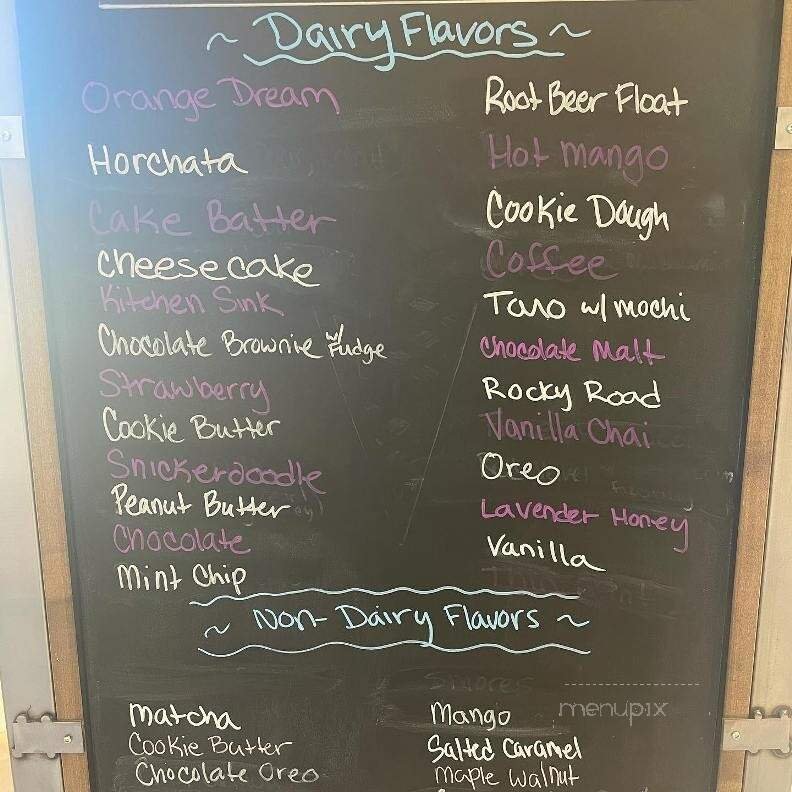 ~ Dairy Flavors ~
Orange Dream
Horchata
Cake Batter
Cheesecake
Kitchen Sink
Chocolate Brownie w/ Fudge
Strawberry
Cookie Butter
Snickerdoodle
Peanut Butter
Chocolate
Mint Chip
Root Beer Float
Hot mango
Cookie Dough
Coffee
Taro w/ mochi
Chocolate Malt
Rocky Road
Vanilla Chai
Oreo
Lavender Honey
Vanilla
~ Non-Dairy Flavors ~
Matcha
Cookie Butter
Chocolate Oreo
Smores
Mango
Salted Caramel
Maple Walnut
menupix